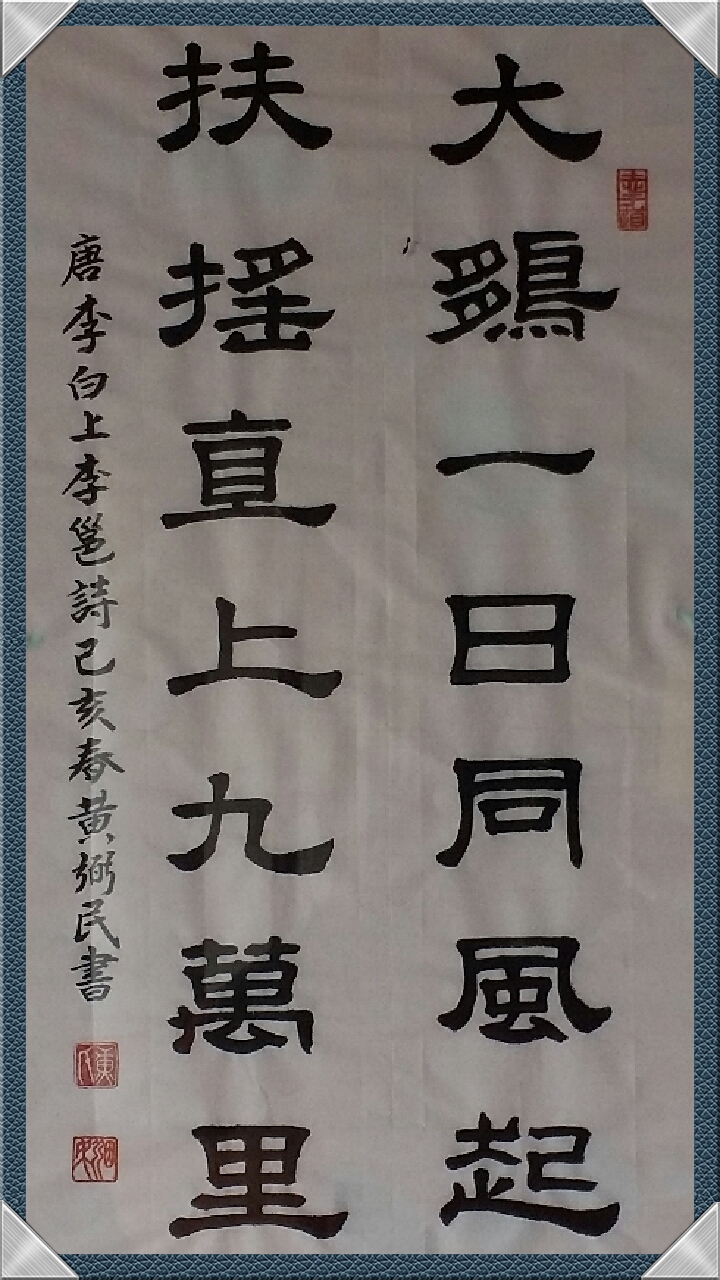 大鵬一日同風起
扶摇直上九萬里
唐李白上李邕詩己亥春黄弼民書
黄氏